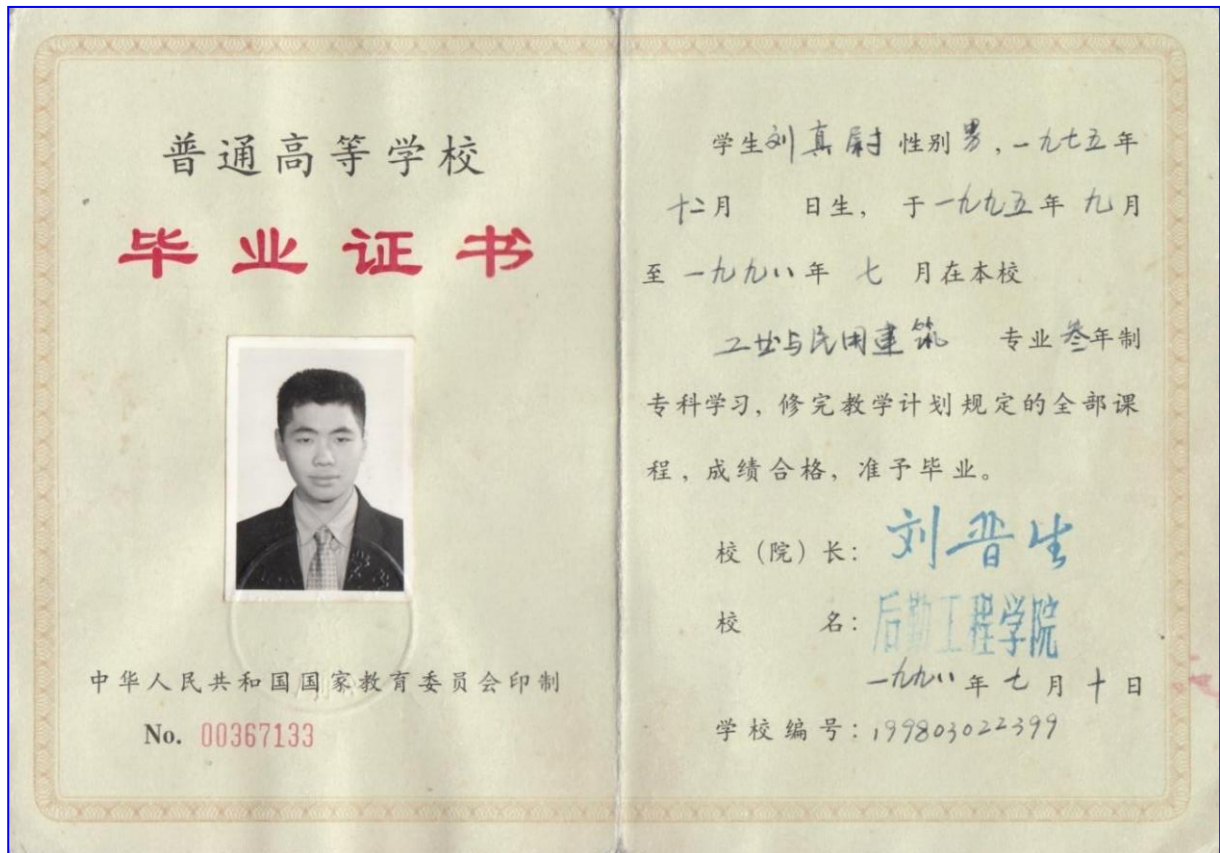 普通高等学校
毕业证书
中华人民共和国国家教育委员会印制
No. 00367133
学生刘真尉 性别男,一九七五年
十二月 日生, 于一九九五年 九月
至 一九九八年 七 月在本校
工业与民用建筑 专业叁年制
专科学习, 修完教学计划规定的全部课
程, 成绩合格, 准予毕业。
校(院)长: 刘晋生
校 名: 后勤工程学院
一九九八年七月十日
学校编号: 199803022399